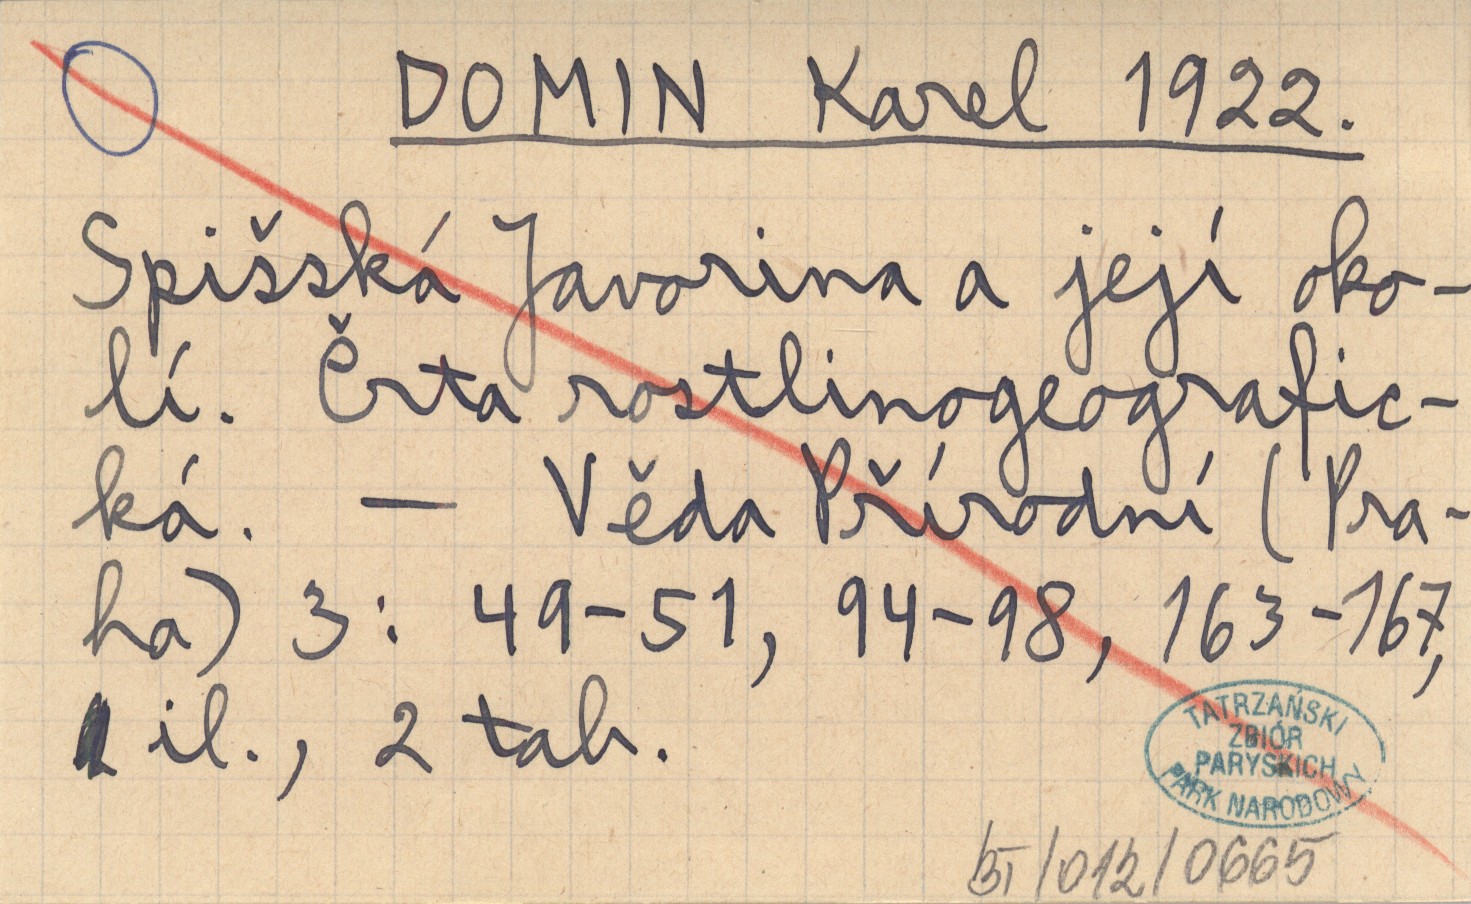 DOMIN Karel 1922.
Spišská Javorina a její oko-
lí. Črta rostlinogeografic-
ká. — Věda Přírodní (Pra-
ha) 3: 49-51, 94-98, 163-167,
il., 2 tab.
TATRZAŃSKI
ZBIÓR
PARYSKICH
PARK NARODOWY
BT/012/0665